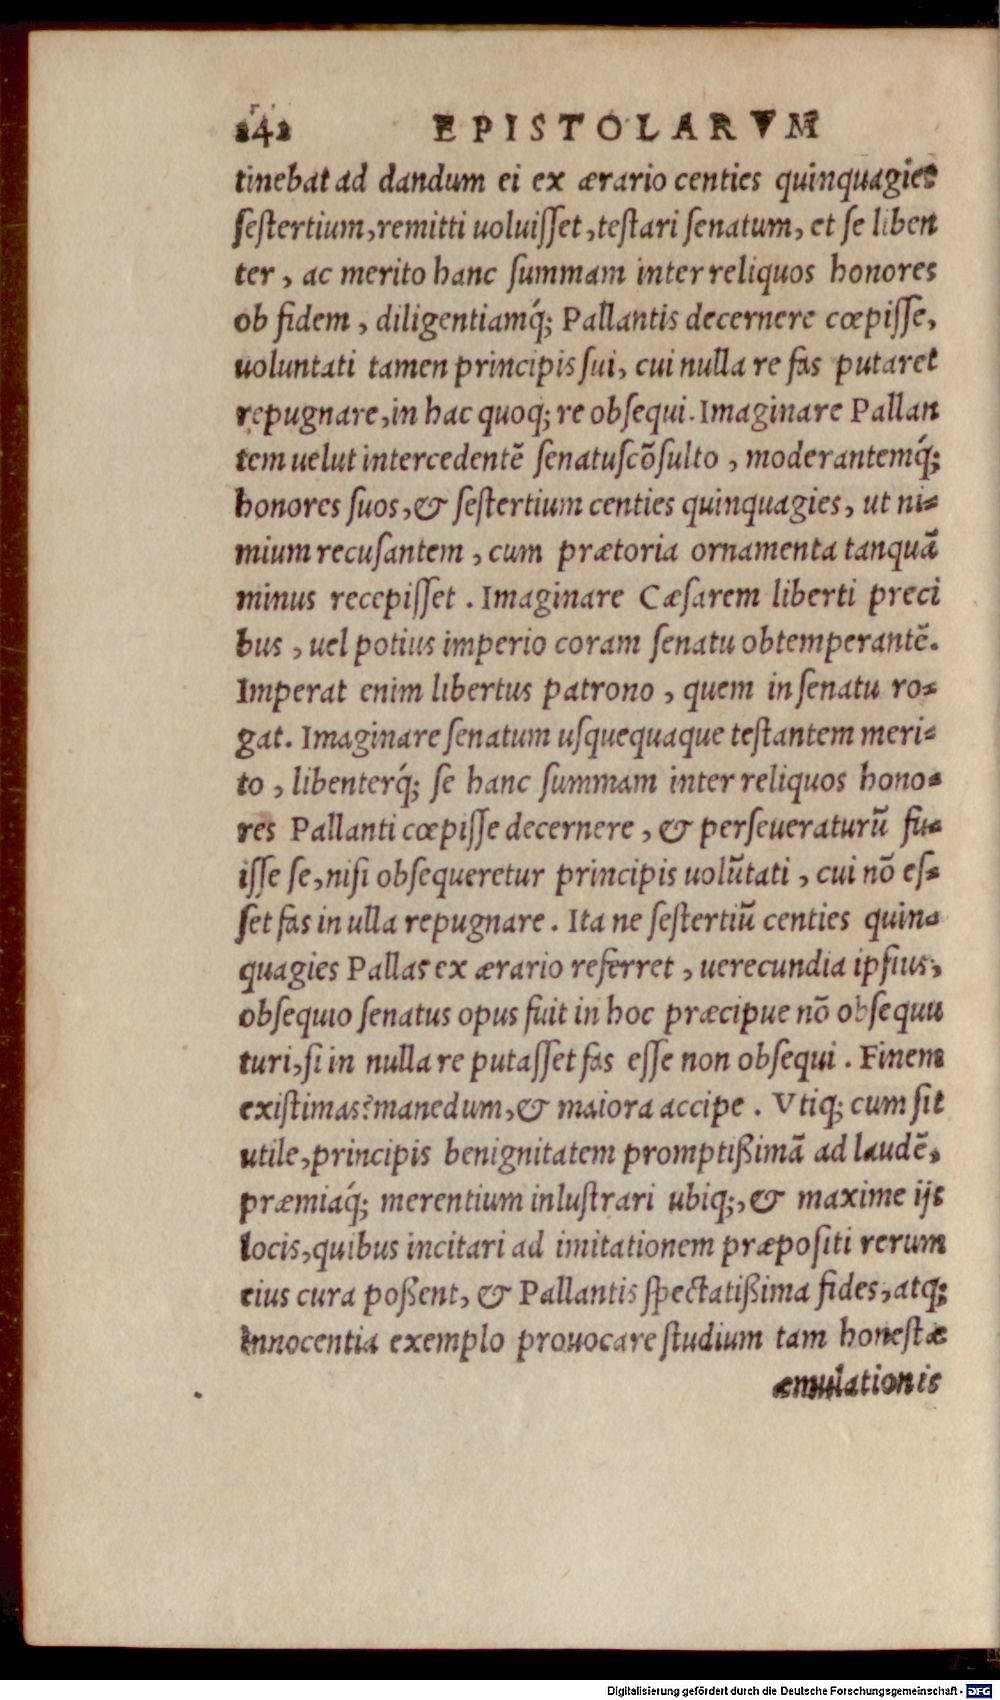 242 EPISTOLARVM
tinebat ad dandum ei ex ærario centies quinquagies
ſeſtertium, remitti uoluiſſet, teſtari ſenatum, et ſe liben
ter, ac merito hanc ſummam inter reliquos honores
ob fidem, diligentiamq́; Pallantis decernere cœpiſſe,
uoluntati tamen principis ſui, cui nulla re fas putaret
repugnare, in hac quoq; re obſequi. Imaginare Pallan
tem uelut intercedentẽ ſenatuſcõſulto, moderantemq́;
honores ſuos, & ſeſtertium centies quinquagies, ut ni-
mium recuſantem, cum prætoria ornamenta tanquã
minus recepiſſet. Imaginare Cæſarem liberti preci
bus, uel potius imperio coram ſenatu obtemperantẽ.
Imperat enim libertus patrono, quem in ſenatu ro-
gat. Imaginare ſenatum uſquequaque teſtantem meri-
to, libenterq́; ſe hanc ſummam inter reliquos hono-
res Pallanti cœpiſſe decernere, & perſeueraturũ fu-
iſſe ſe, niſi obſequeretur principis uolũtati, cui nõ eſ-
ſet fas in ulla repugnare. Ita ne ſeſtertiũ centies quin-
quagies Pallas ex ærario referret, uerecundia ipſius,
obſequio ſenatus opus fuit in hoc præcipue nõ obſequu
turi, ſi in nulla re putaſſet fas eſſe non obſequi. Finem
exiſtimas? mane dum, & maiora accipe. Vtiq; cum ſit
utile, principis benignitatem promptißimã ad laudẽ,
præmiaq́; merentium inluſtrari ubiq;, & maxime ijs
locis, quibus incitari ad imitationem præpoſiti rerum
eius cura poßent, & Pallantis ſpectatißima fides, atq;
innocentia exemplo prouocare ſtudium tam honeſtæ
æmulationis
Digitalisierung gefördert durch die Deutsche Forschungsgemeinschaft - DFG